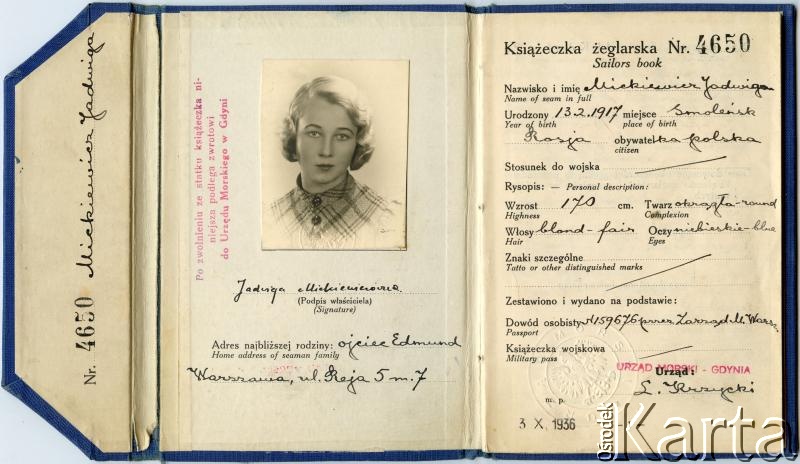 Nr. 4650 Mickiewicz Jadwiga
Po zwolnieniu ze statku książeczka ni-
niejsza podlega zwrotowi
do Urzędu Morskiego w Gdyni
Jadwiga Mickiewiczówna
(Podpis właściciela)
(Signature)
Adres najbliższej rodziny: ojciec Edmund
Home address of seaman family
Warszawa, ul. Reja 5 m. 7
Książeczka żeglarska Nr. 4650
Sailors book
Nazwisko i imię Mickiewicz Jadwiga
Name of seam in full
Urodzony 13.2.1917 miejsce Smoleńsk
Year of birth place of birth
Rosja obywatelka polska
citizen
Stosunek do wojska
Rysopis: — Personal description:
Wzrost 170 cm. Twarz okrągła-round
Highness Complexion
Włosy blond-fair Oczy niebieskie-blue
Hair Eyes
Znaki szczególne
Tatto or other distinguished marks
Zestawiono i wydano na podstawie:
Dowód osobisty 159676 przez Zarząd M. Warsz.
Passport
Książeczka wojskowa
Military pass
URZĄD MORSKI - GDYNIA
Urząd:
m. p. L. Krzycki
3 X. 1936
Ośrodek
Karta